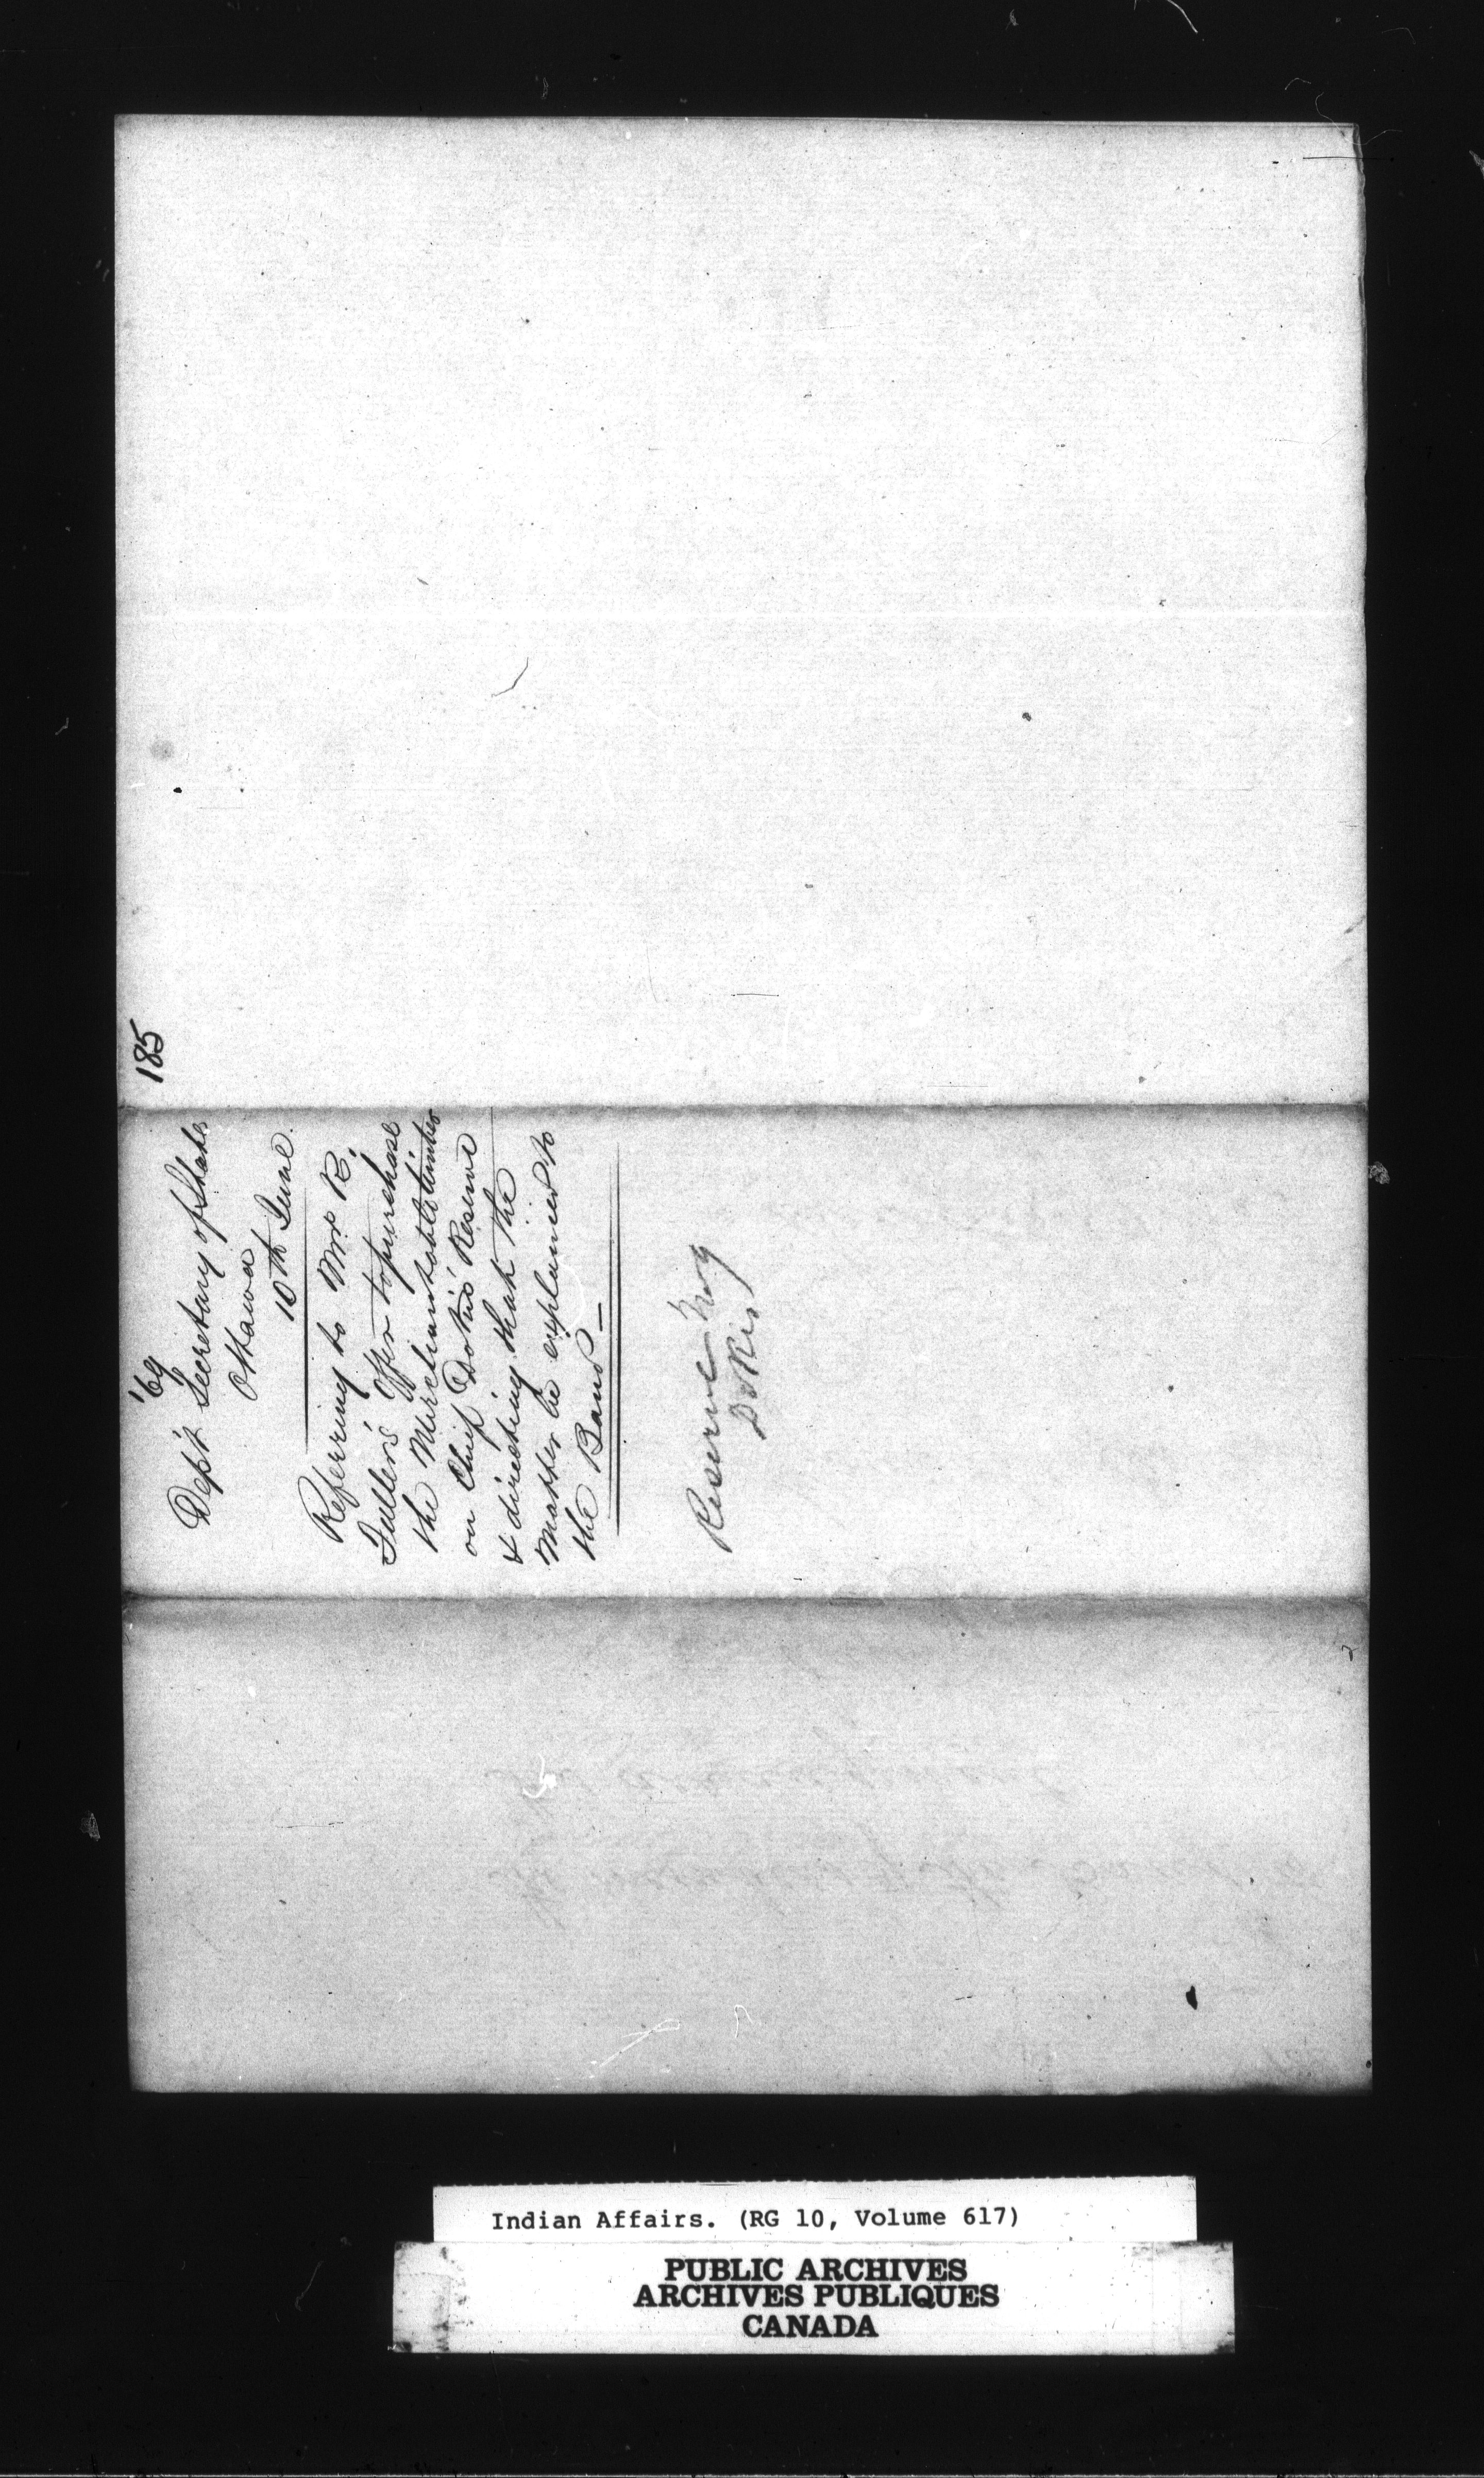 185
'69
Dep't Secretary of State
Ottawa
10th June
Referring to Mr R.
Fuller's offer to purchase
the Merchantable timber
on Chief Dokis' Reserve
& directing that the
Matter be explained to
the Band_
Reserve No 9
Dokis
Indian Affairs. (RG 10, Volume 617)
PUBLIC ARCHIVES
ARCHIVES PUBLIQUES
CANADA